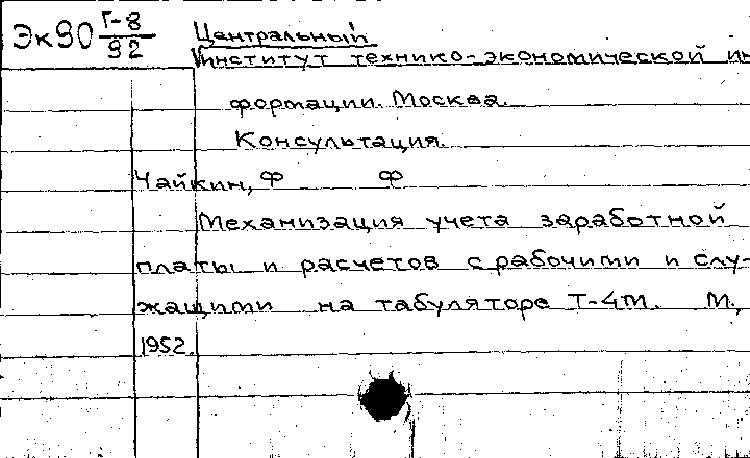 Эк90 Г-8/92
Центральный
Институт технико-экономической ин
формации. Москва.
Консультация.
Чайкин, Ф Ф
Механизация учета заработной
платы и расчетов с рабочими и слу-
жащими на табуляторе Т-4М. М.,
1952.